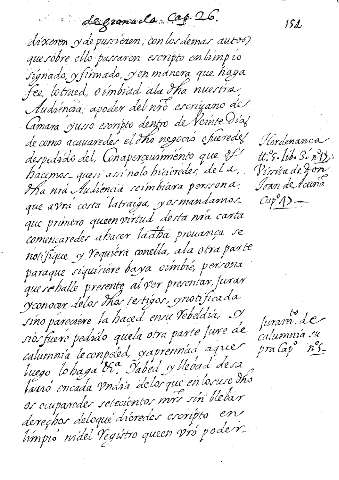 de granada. Cap. 26.
152
dixeren, y depusieren, con los demas autos
que sobre ello passaren escripto en limpio
signado, y firmado, y en manera que haga
fee, le traed, o imbiad a la dha nuestra
Audiencia, a poder del nro escriuano de
Camara yuso escripto dentro de Veinte Dias
de como acauaredes el dho negocio, e fueredes
despedido del, Con apercuimiento que os
hacemos que si asi no lo hicieredes de la
dha nra Audiencia se imbiara persona
que a vra costa la traiga, y os mandamos
que primero que en virtud desta nra carta
comencaredes a hacer la dha prouança se
notifique, y requiera con ella, a la otra parte
para que si quisiere baya o imbie, persona
que se halle presente al ver presentar, jurar
y conocer de los dhos testigos, y notificada
si no pareciere la haced en su Rebeldia. Y
si os fuere pedido que la otra parte jure de
calumnia le conpeled, y apremiad a que
luego lo haga
en cada Vn dia de los que en lo suso dho
os ocuparedes setecientos mrs sin llebar
derechos de lo que dieredes escripto en
limpio ni del Registro que en vro poder
Hordenanca
Visita de Don
Juan de Acuña
Cap. 17.
Juramto de
calumnia su
pra Cap.